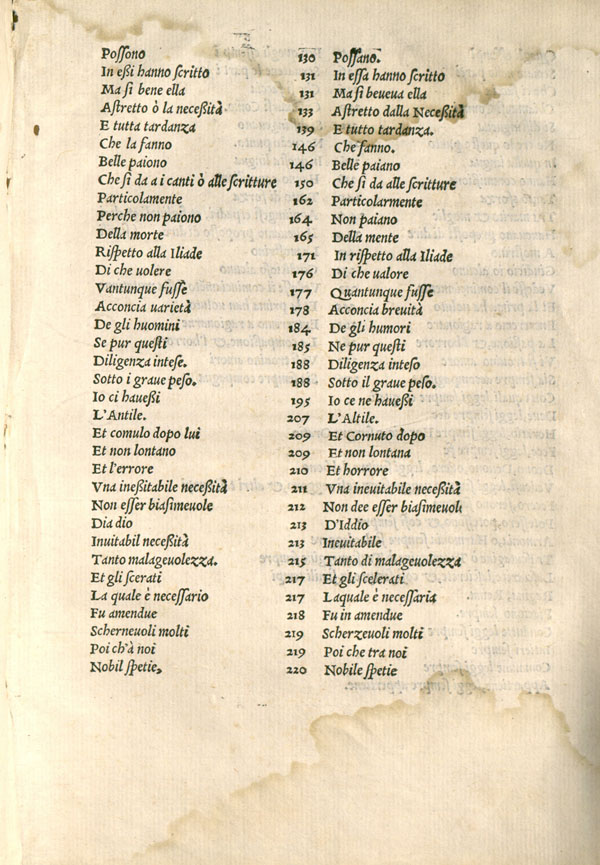 Poſſono 130 Poſſano.
In eßi hanno ſcritto 131 In eſſa hanno ſcritto
Ma ſi bene ella 131 Ma ſi beueua ella
Aſtretto ò la neceßità 133 Aſtretto dalla Neceßità
E tutta tardanza 139 E tutto tardanza.
Che la fanno 146 Che fanno.
Belle paiono 146 Belle paiano
Che ſi da a i canti ò alle ſcritture 150 Che ſi da alle ſcritture
Particolamente 162 Particolarmente
Perche non paiono 164 Non paiano
Della morte 165 Della mente
Riſpetto alla Iliade 171 In riſpetto alla Iliade
Di che uolere 176 Di che ualore
Vantunque fuſſe 177 Quantunque fuſſe
Acconcia uarietà 178 Acconcia breuità
De gli huomini 184 De gli humori
Se pur queſti 185 Ne pur queſti
Diligenza inteſe. 188 Diligenza inteſo
Sotto i graue peſo. 188 Sotto il graue peſo.
Io ci haueßi 195 Io ce ne haueßi
L'Antile. 207 L'Altile.
Et comulo dopo lui 209 Et Cornuto dopo
Et non lontano 209 Et non lontana
Et l'errore 210 Et horrore
Vna ineßitabile neceßità 211 Vna ineuitabile neceßità
Non eſſer biaſimeuole 212 Non dee eſſer biaſimeuole
Dia dio 213 D'Iddio
Inuitabil neceßità 213 Ineuitabile
Tanto malageuolezza. 215 Tanto di malageuolezza
Et gli ſcerati 217 Et gli ſcelerati
La quale è neceſſario 217 Laquale è neceſſaria
Fu amendue 218 Fu in amendue
Scherneuoli molti 219 Scherzeuoli molti
Poi ch'à noi 219 Poi che tra noi
Nobil ſpetie, 220 Nobile ſpetie